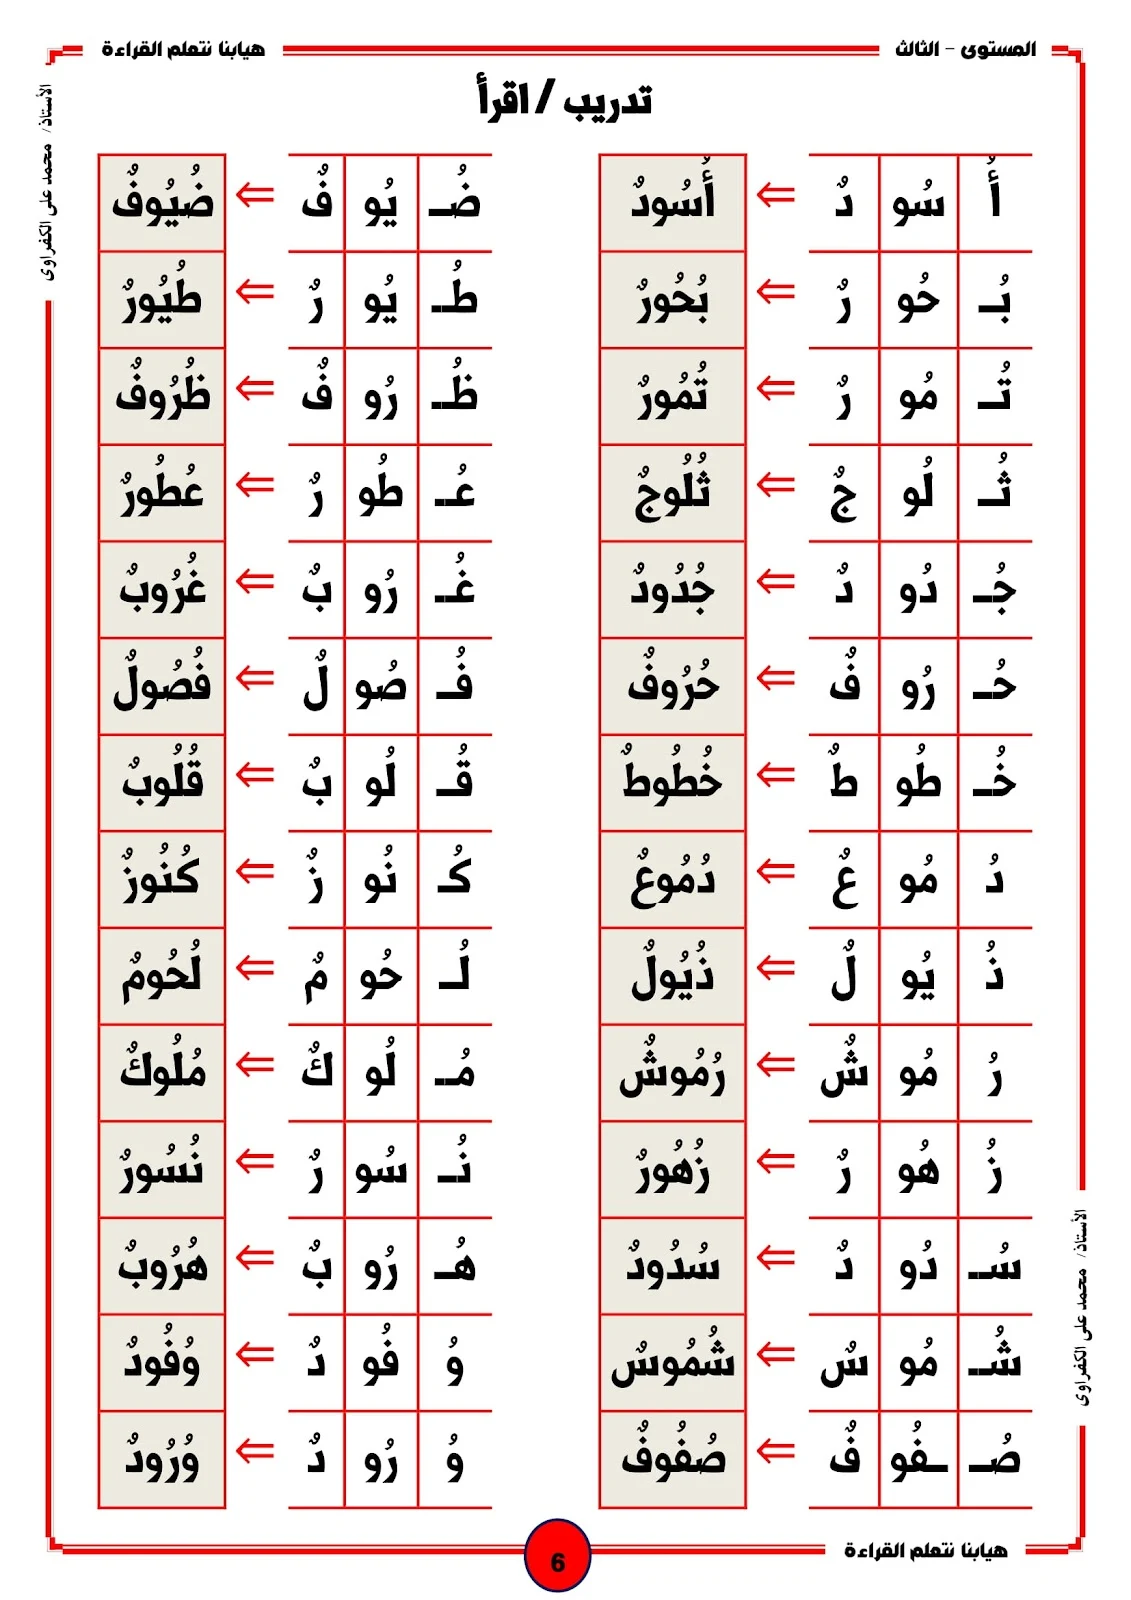 المستوى - الثالث هيابنا نتعلم القراءة
تدريب / اقرأ
أُ سُو دٌ ⇐ أُسُودٌ ضُـ يُو فٌ ⇐ ضُيُوفٌ
بُـ حُو رٌ ⇐ بُحُورٌ طُـ يُو رٌ ⇐ طُيُورٌ
تُـ مُو رٌ ⇐ تُمُورٌ ظُـ رُو فٌ ⇐ ظُرُوفٌ
ثُـ لُو جٌ ⇐ ثُلُوجٌ عُـ طُو رٌ ⇐ عُطُورٌ
جُـ دُو دٌ ⇐ جُدُودٌ غُـ رُو بٌ ⇐ غُرُوبٌ
حُـ رُو فٌ ⇐ حُرُوفٌ فُـ صُو لٌ ⇐ فُصُولٌ
خُـ طُو طٌ ⇐ خُطُوطٌ قُـ لُو بٌ ⇐ قُلُوبٌ
دُ مُو عٌ ⇐ دُمُوعٌ كُـ نُو زٌ ⇐ كُنُوزٌ
ذُ يُو لٌ ⇐ ذُيُولٌ لُـ حُو مٌ ⇐ لُحُومٌ
رُ مُو شٌ ⇐ رُمُوشٌ مُـ لُو كٌ ⇐ مُلُوكٌ
زُ هُو رٌ ⇐ زُهُورٌ نُـ سُو رٌ ⇐ نُسُورٌ
سُـ دُو دٌ ⇐ سُدُودٌ هُـ رُو بٌ ⇐ هُرُوبٌ
شُـ مُو سٌ ⇐ شُمُوسٌ وُ فُو دٌ ⇐ وُفُودٌ
صُـ ـفُو فٌ ⇐ صُفُوفٌ وُ رُو دٌ ⇐ وُرُودٌ
هيابنا نتعلم القراءة
6
الأستاذ/ محمد على الكفراوى
الأستاذ/ محمد على الكفراوى